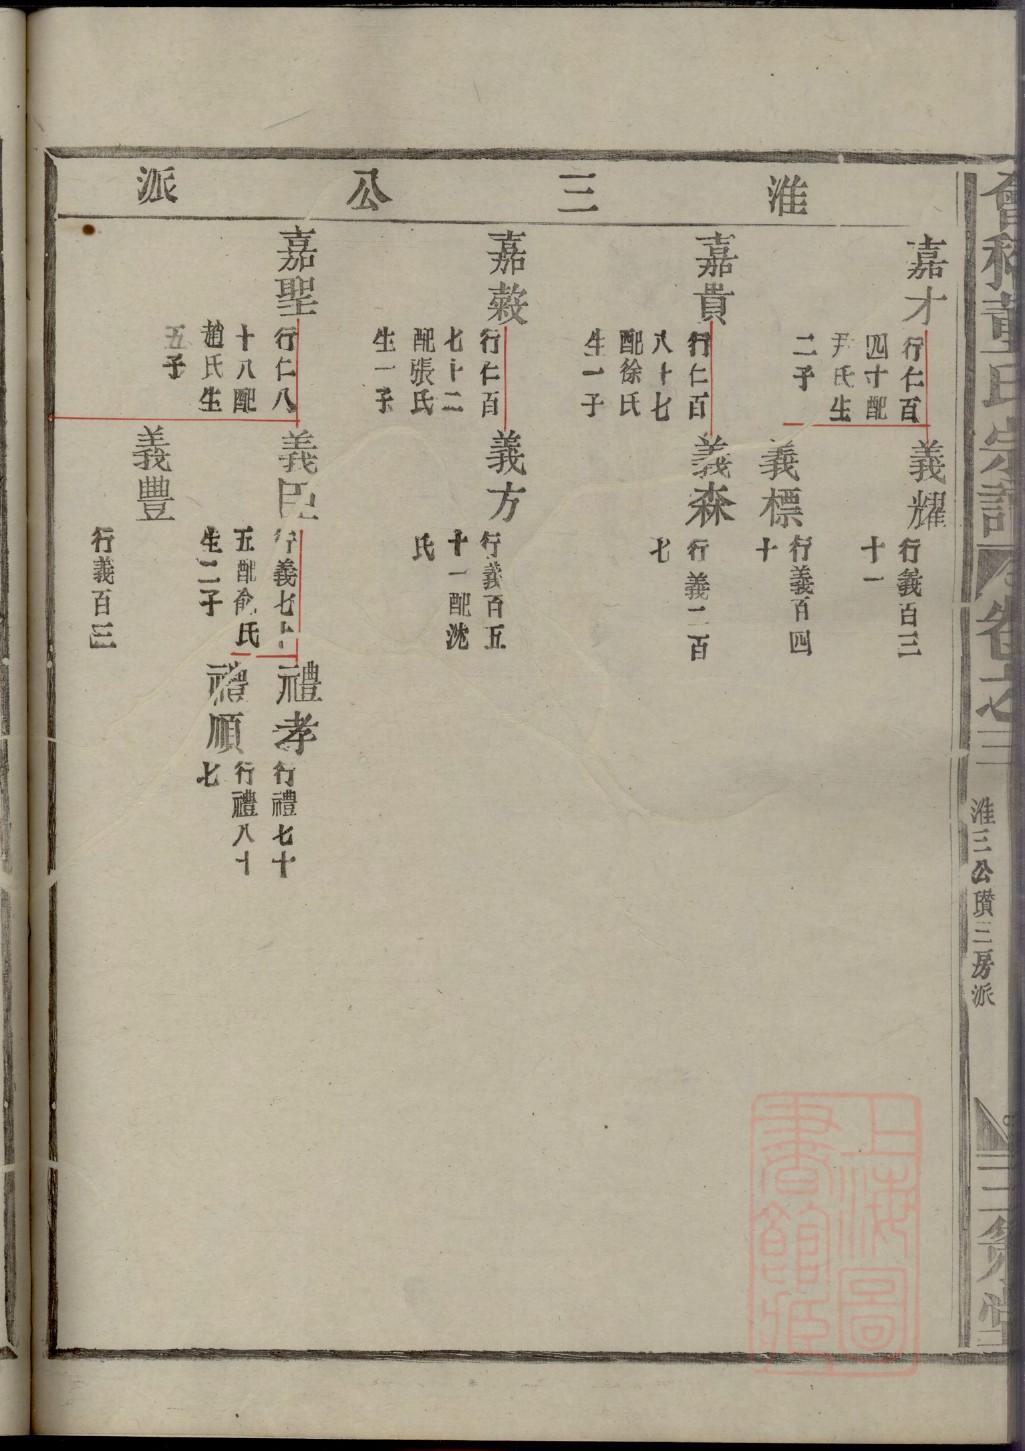 會稽董氏宗譜
卷之三
淮三公瓚三房派
三策堂
淮三公派
嘉才
行仁百
四十配
尹氏生
二子
義耀
行義百三
十一
義標
行義百四
十
嘉貴
行仁百
八十七
配徐氏
生一子
義森
行義二百
七
嘉穀
行仁百
七十二
配張氏
生一子
義方
行義百五
十一配沈
氏
嘉聖
行仁八
十八配
趙氏生
五子
義臣
行義七十
五配俞氏
生二子
禮孝
行禮七十
禮順
行禮八十
七
義豐
行義百三
上海圖
書館藏